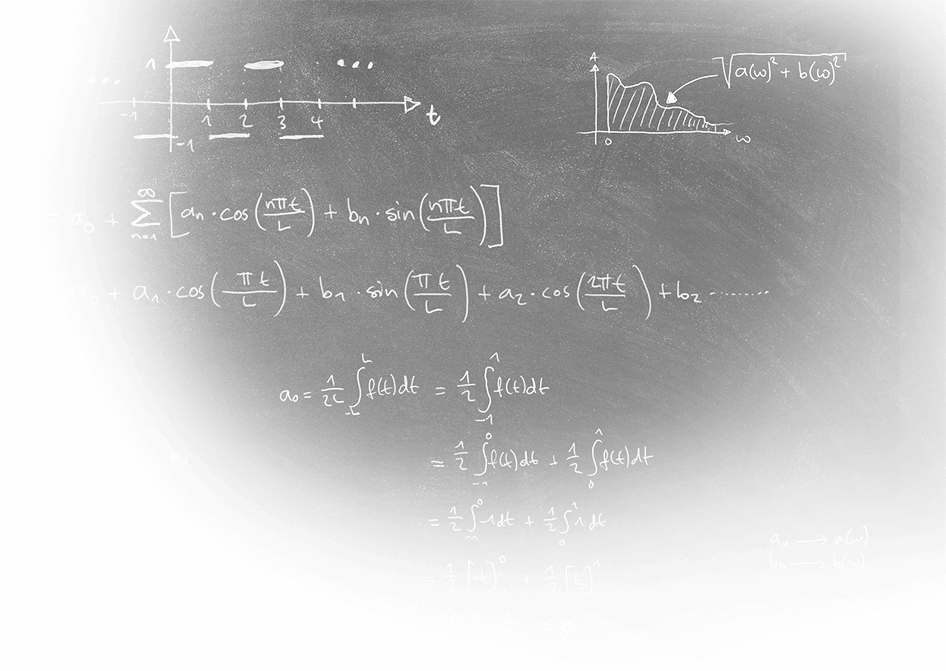 1 ...
... t
-1 1 2 3 4
-1
A √(a(ω)² + b(ω)²)
0 ω
a₀ + ∑_{n=1}^{∞} [aₙ · cos(nπt/L) + bₙ · sin(nπt/L)]
a₀ + a₁ · cos(πt/L) + b₁ · sin(πt/L) + a₂ · cos(2πt/L) + b₂ ........
a₀ = 1/2L ∫_{-L}^{L} f(t)dt = 1/2 ∫_{-1}^{1} f(t)dt
= 1/2 ∫_{-1}^{0} f(t)dt + 1/2 ∫_{0}^{1} f(t)dt
= 1/2 ∫_{-1}^{0} -1dt + 1/2 ∫_{0}^{1} 1dt
aₙ → a(ω)
bₙ → b(ω)
= 1/2 [-t]⁰ + 1/2 [t]¹